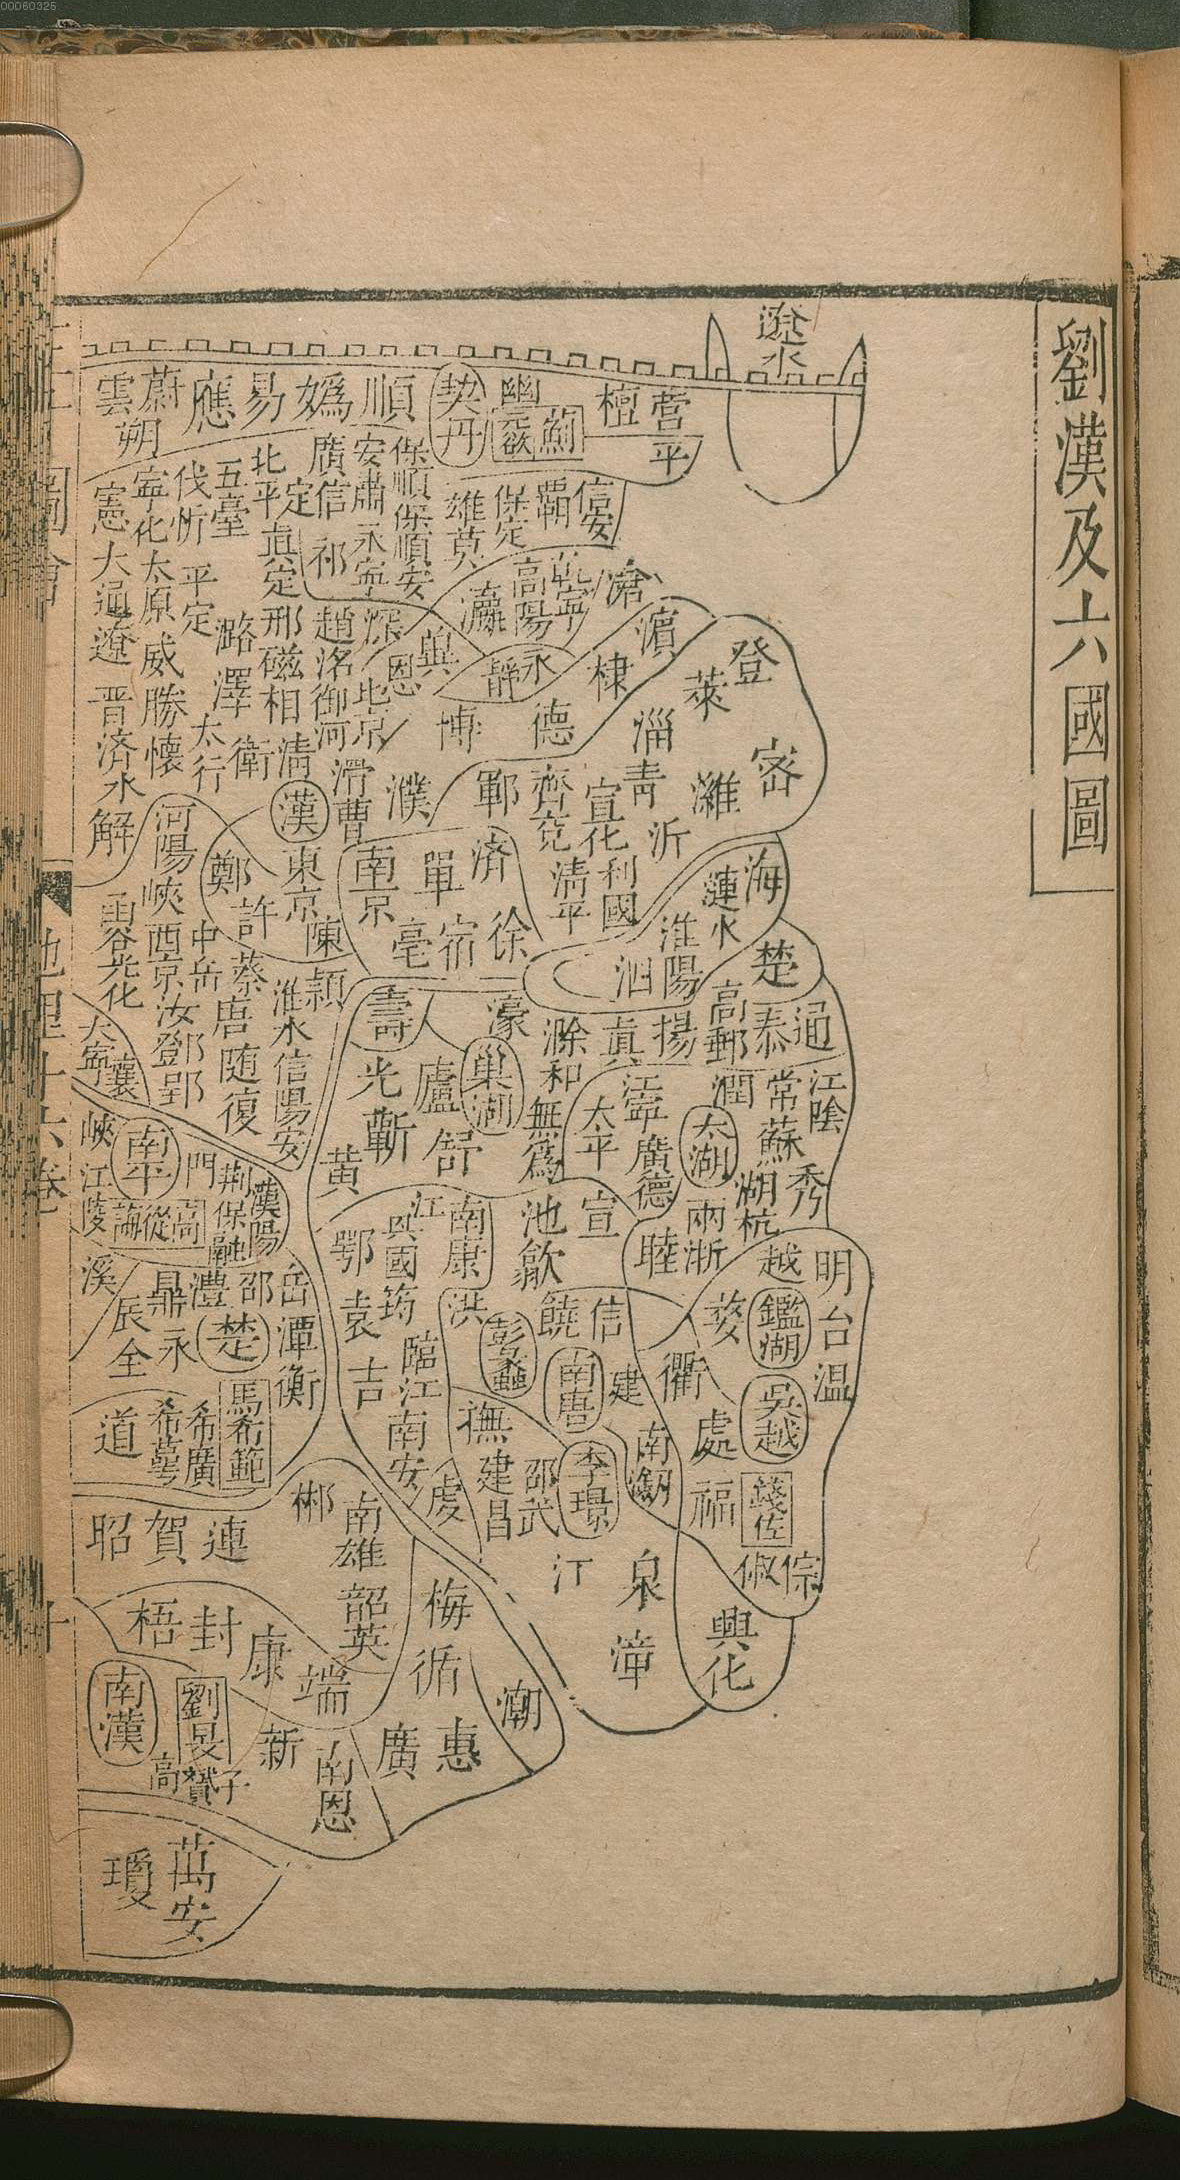 00060325
劉漢及六國圖
遼水
營平
檀
薊
幽
契丹
順
媯
易
應
蔚
雲
朔
信安
霸
保定
雄
莫
保順
保順安
安肅
永寧
廣信
祁
北平
定
真定
五臺
伐
忻
平定
寧化
太原
威勝
憲
大通
遼
晉
濟水
解
懷
太行
潞
澤
衛
邢
磁
相
清
趙
洺
御河
滑
曹
深
北京
恩
冀
乾寧
高陽
瀛
滄
永靜
濱
棣
德
博
濮
登
萊
密
淄
青
濰
沂
宣化
利國
齊
兗
清平
鄆
濟
單
南京
徐
宿
亳
漢
東京
陳
潁
鄭
許
蔡
唐
隨
復
河陽
峽
西京
汝
鄧
郢
中岳
函谷
光化
大寧
襄
淮水
信陽
安
海
漣水
淮陽
泗
楚
通
泰
高郵
揚
真
滁
和
無為
濠
巢湖
廬
舒
壽
光
蘄
黃
江陰
常
蘇
秀
潤
太湖
湖
杭
兩浙
睦
江寧
廣德
太平
宣
池
歙
南康
江
興國
鄂
筠
袁
吉
臨江
南安
虔
洪
彭蠡
饒
信
南唐
李璟
建
南劍
邵武
建昌
撫
汀
泉
漳
明
台
溫
越
鑑湖
婺
衢
處
吳越
錢佐
倧
俶
福
興化
漢陽
荊門
保融
南平
高從誨
峽
江陵
溪
岳
潭
衡
邵
楚
澧
鼎
永
辰
全
馬希範
希廣
希萼
道
郴
連
賀
昭
南雄
韶
英
梅
循
潮
惠
廣
端
康
封
梧
南漢
劉旻
子贇
高
新
南恩
萬安
瓊